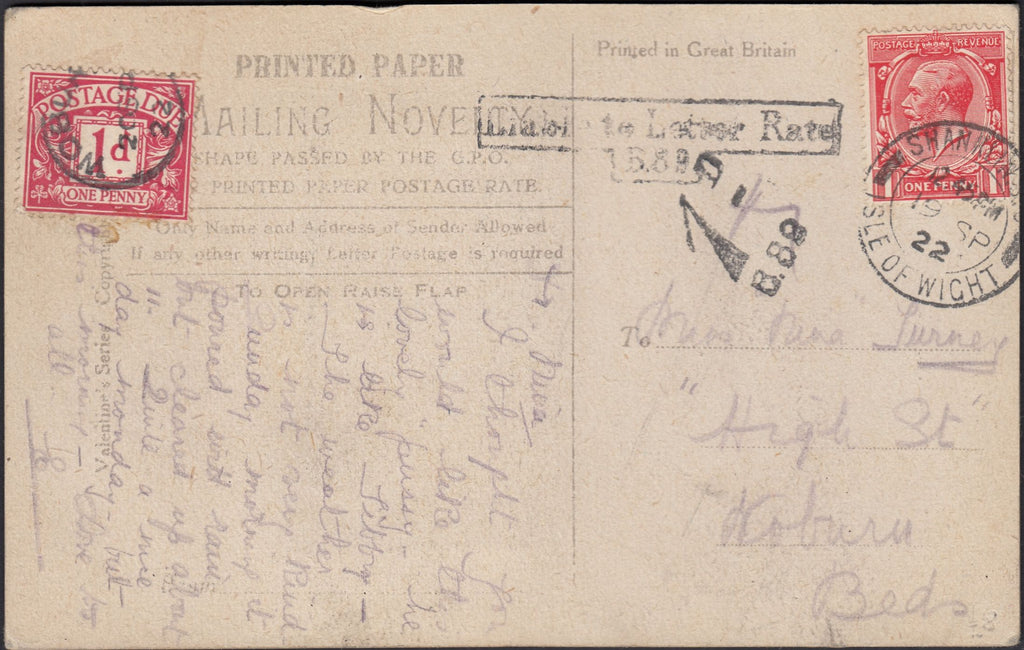 PRINTED PAPER
MAILING NOVELTY
SHAPE PASSED BY THE G.P.O.
PRINTED PAPER POSTAGE RATE.
Only Name and Address of Sender Allowed
If any other writing, Letter Postage is required
TO OPEN RAISE FLAP
Valentine's Series Copyright
Printed in Great Britain
POSTAGE DUE
1d.
ONE PENNY
WOBURN
22
Liable to Letter Rate
B.89
1D
B.89
POSTAGE REVENUE
ONE PENNY
SHANKLIN
ISLE OF WIGHT
19 SP
22
To Miss Nina Turney
"High St"
Woburn
Beds
Nina
I thought you
would like this
lovely pussy - the
is like Tibby -
The weather
is not very kind
Sunday morning it
poured with rain,
but cleared up about
11. Quite a nice
day Monday, but
this morning - Love to
all.